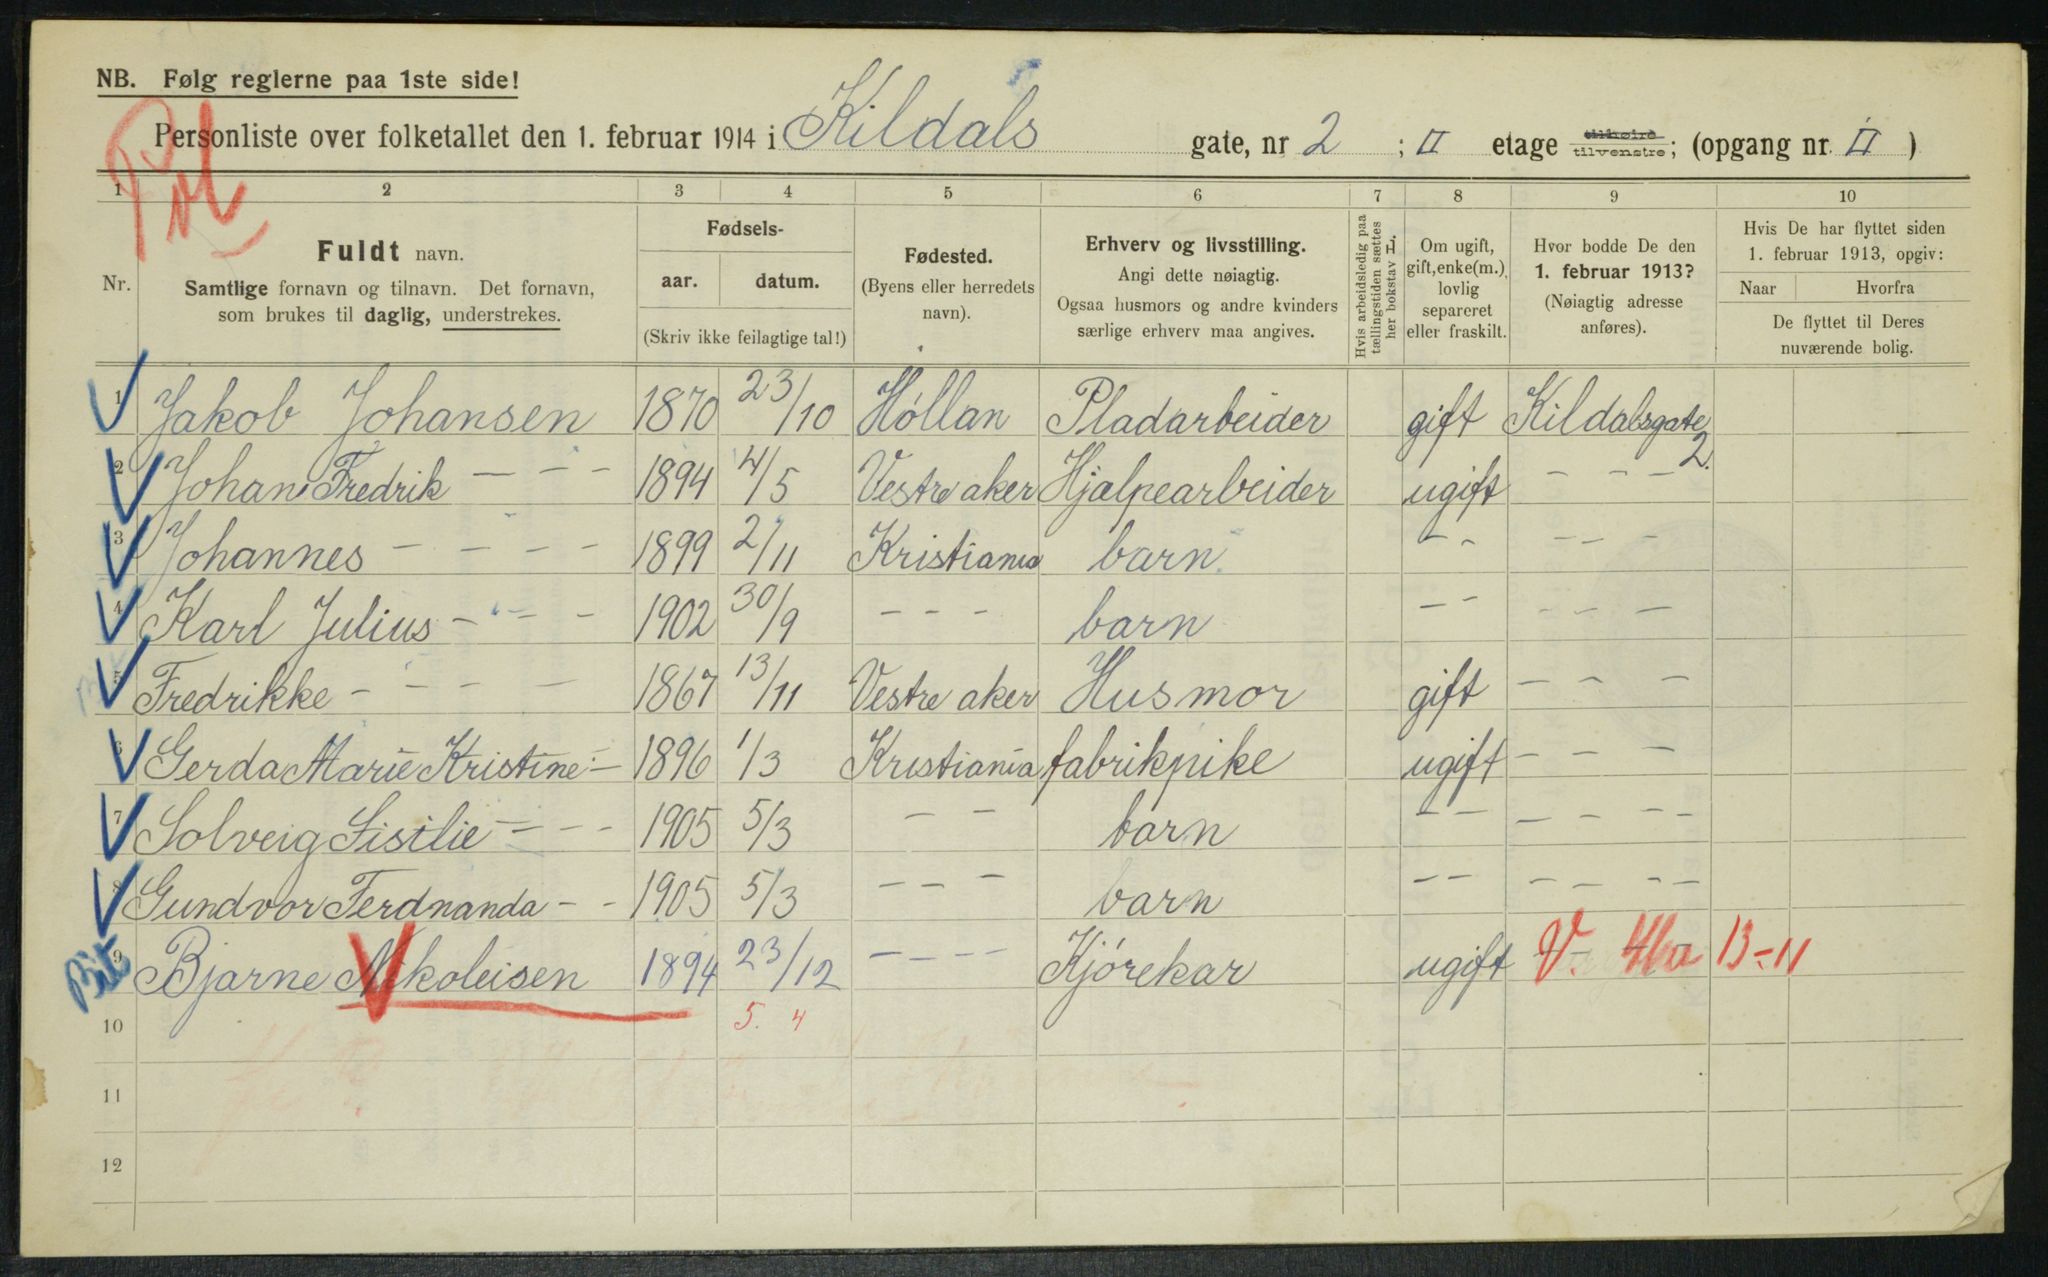 NB. Følg reglerne paa 1ste side!
Personliste over folketallet den 1. februar 1914 i Kildals gate, nr 2 ; II etage tilhøire tilvenstre; (opgang nr. II )
1 2 3 4 5 6 7 8 9 10
Nr.
Fuldt navn.
Samtlige fornavn og tilnavn. Det fornavn,
som brukes til daglig, understrekes.
Fødsels-
aar. datum.
(Skriv ikke feilagtige tal!)
Fødested.
(Byens eller herredets
navn).
Erhverv og livsstilling.
Angi dette nøiagtig.
Ogsaa husmors og andre kvinders
særlige erhverv maa angives.
Hvis arbeidsledig paa
tællingstiden sættes
her bokstav L.
Om ugift,
gift, enke(m.),
lovlig
separeret
eller fraskilt.
Hvor bodde De den
1. februar 1913?
(Nøiagtig adresse
anføres).
Hvis De har flyttet siden
1. februar 1913, opgiv:
Naar Hvorfra
De flyttet til Deres
nuværende bolig.
1 Jakob Johansen 1870 23/10 Hóllan Pladarbeider gift Kildalsgate 2.
2 Johan Fredrik - - - 1894 4/5 Vestre aker Hjælpearbeider ugift - - -
3 Johannes - - - - 1899 2/11 Kristiania barn - - - - -
4 Karl Julius - - - - 1902 30/9 - - - barn - - - - -
5 Fredrikke - - - - 1867 13/11 Vestre aker Husmor gift - - -
6 Gerda Marie Kristine - 1896 1/3 Kristiania fabrikpike ugift - - -
7 Solveig Sisilie - - - 1905 5/3 - - barn - - - - - -
8 Gundvor Ferdnanda - - 1905 5/3 - - - barn - - - - - -
9 Bjarne Nikoleisen 1894 23/12 - - - - Kjórekar ugift V. 13-11
5. 4
10
11
12